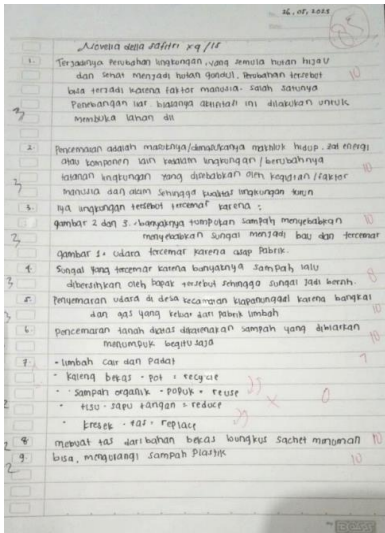 26, 05, 2023
Novelia della safitri x9 / 15
1. Terjadinya Perubahan lingkungan, yang semula hutan hijau
dan sehat menjadi hutan gundul. Perubahan tersebot
bisa terjadi karena faktor manusia. salah satunya
Penebangan liar. biasanya aktivitas ini dilakukan untuk
membuka lahan dll
10
3
2. Pencemaran adalah masuknya/dimasukanya makhluk hidup. zat energi
atau komponen lain kedalam lingkungan / berubahnya
tatanan lingkungan yang disebabkan oleh kegiatan / faktor
manusia dan alam sehingga kualitas lingkungan turun
10
3
3. Iya lingkungan tersebut tercemar karena :
gambar 2 dan 3. banyaknya tumpukan sampah menyebabkan
menyebabkan sungai menjadi bau dan tercemar
gambar 1. udara tercemar karena asap Pabrik.
10
3
4. Sungai yang tercemar karena banyaknya sampah lalu
dibersihkan oleh bapak tersebut sehingga sungai jadi bersih.
8
3
5. Penyemaran udara di desa kecamatan klapanunggal karena bangkai
dan gas yang keluar dari Pabrik limbah
10
3
6. Pencemaran tanah diatas dikarenakan sampah yang dibiarkan
menumpuk begitu saja
10
7. - limbah cair dan Padat
7
• kaleng bekas - pot = recycle
• sampah organik - pupuk = reuse
• tisu - sapu tangan = reduce
• kresek - tas = replace
x 0
2
8. membuat tas dari bahan bekas bungkus sachet minuman
10
2
9. bisa, mengurangi sampah plastik
10
2